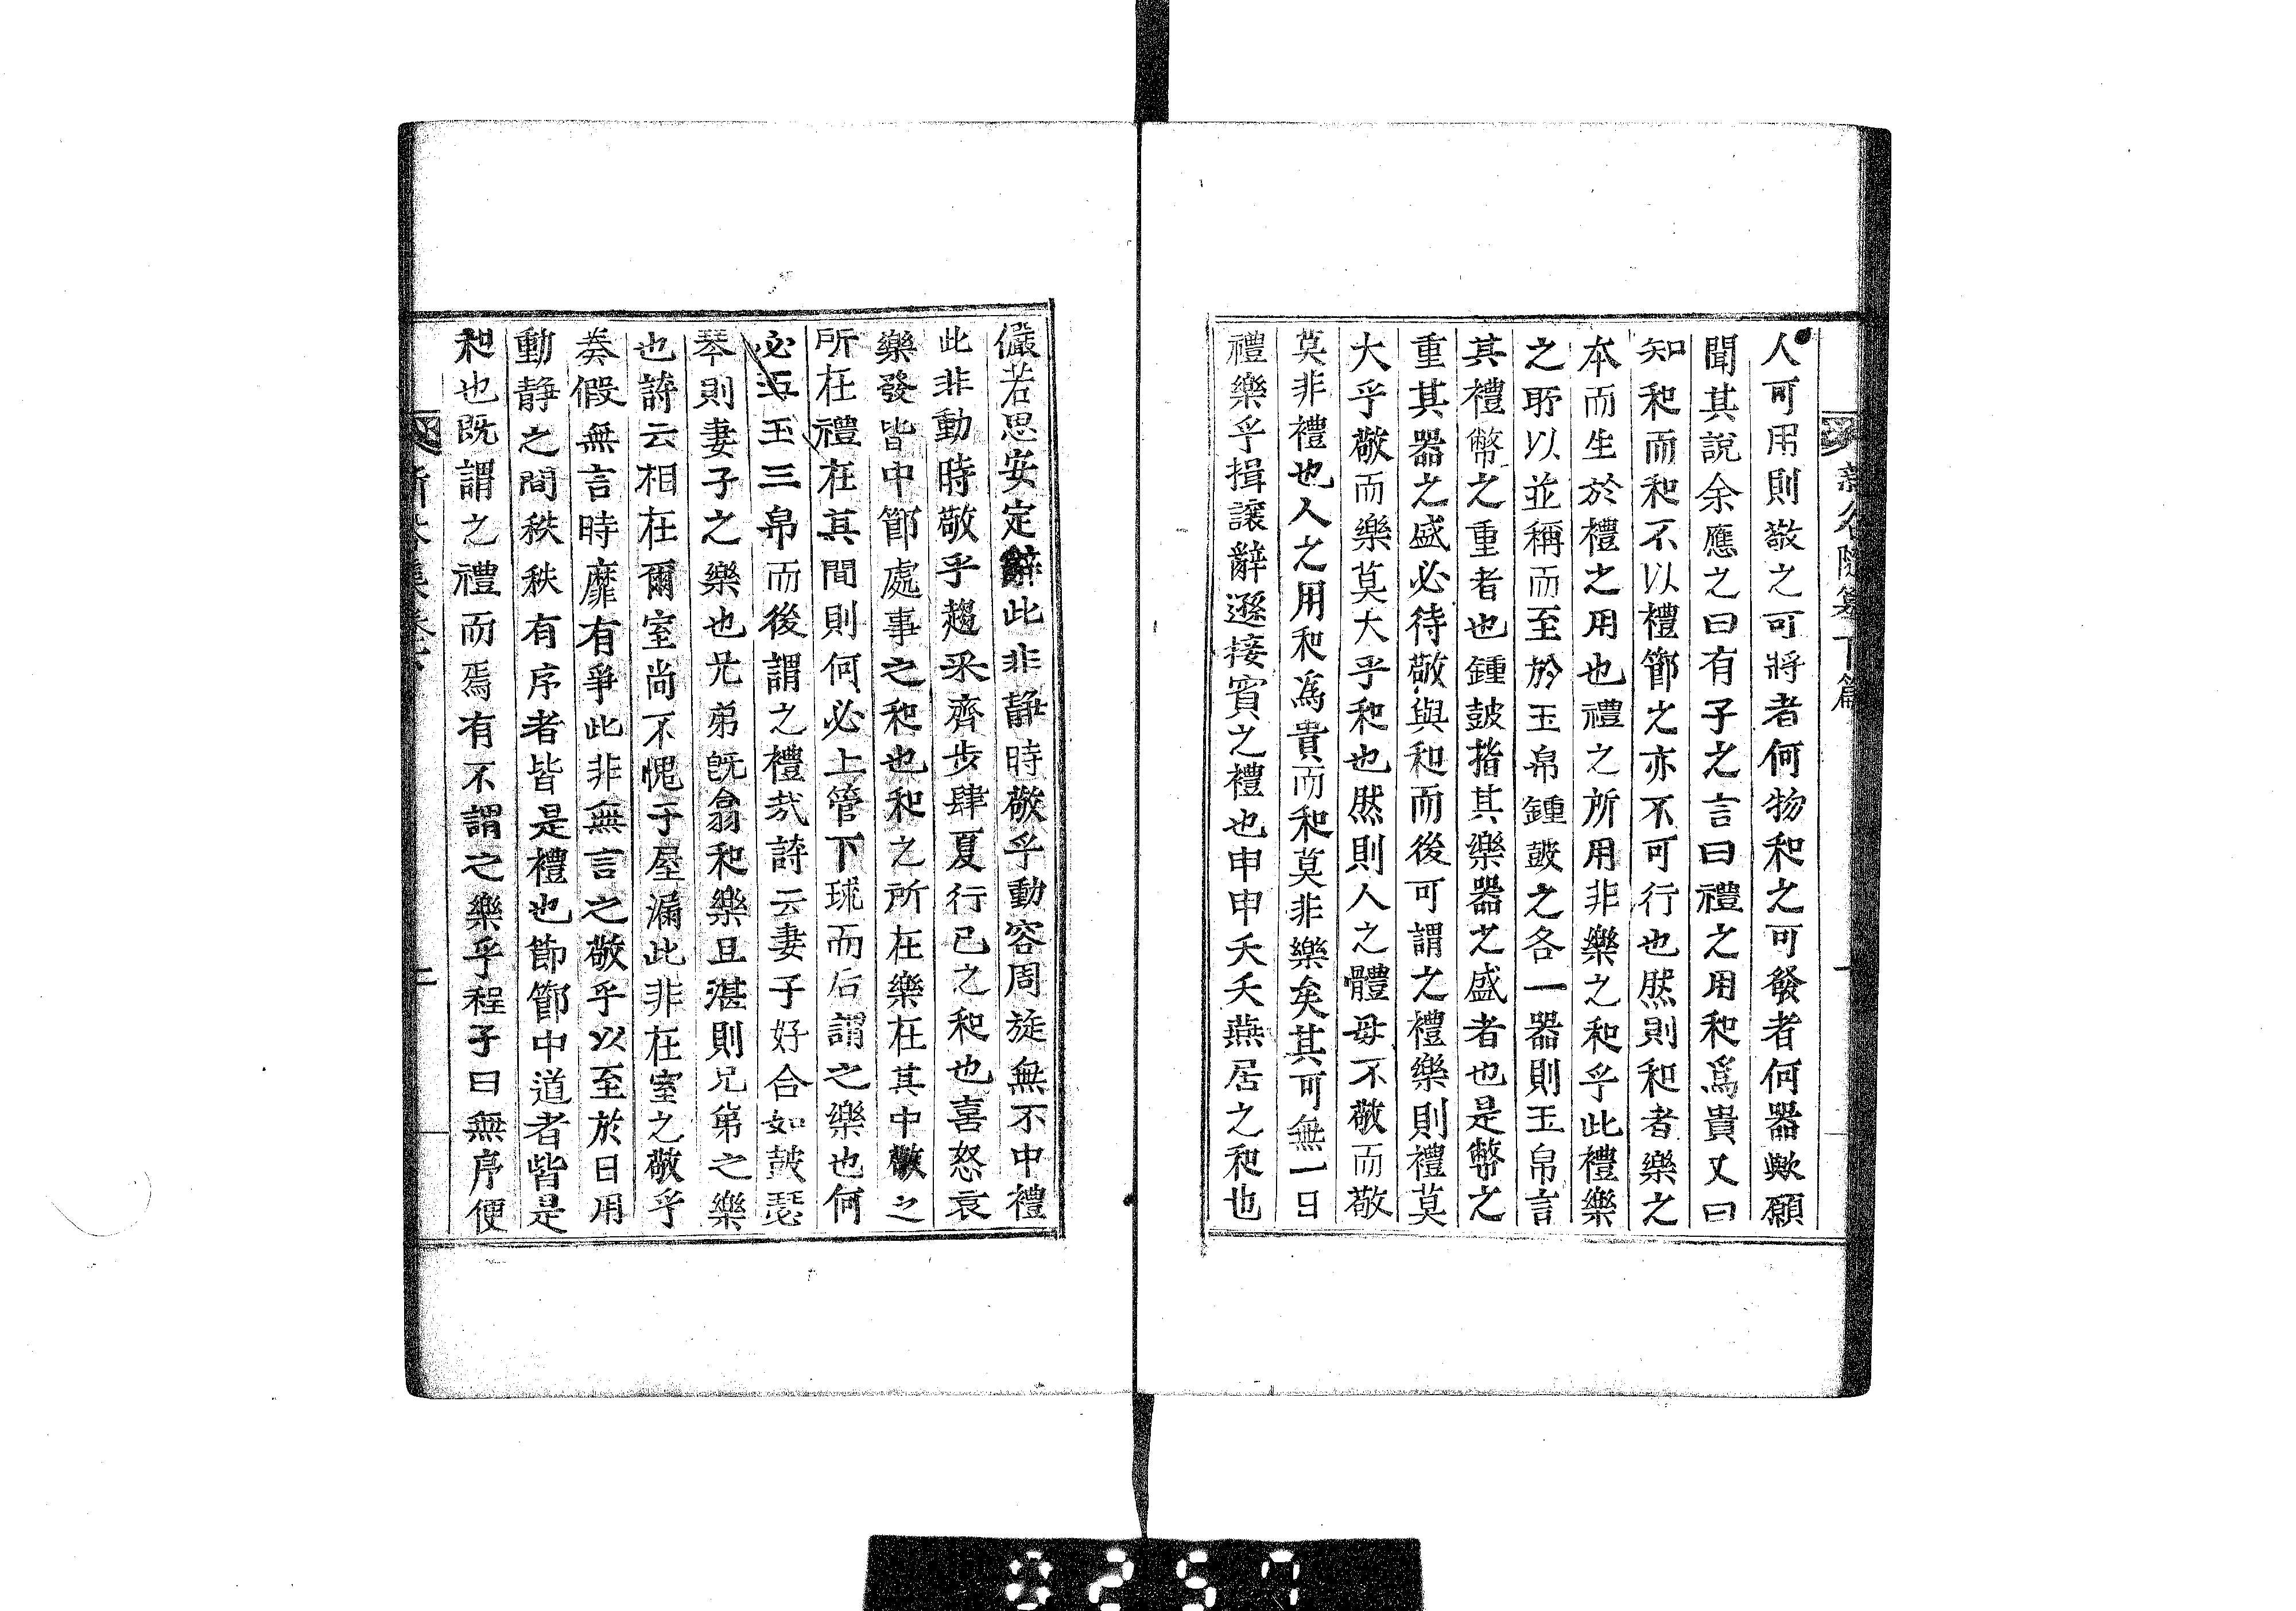 下篇
人可用則敬之可將者何物和之可發者何器歟願
聞其說余應之曰有子之言曰禮之用和爲貴又曰
知和而和不以禮節之亦不可行也然則和者樂之
本而生於禮之用也禮之所用非樂之和乎此禮樂
之所以並稱而至於玉帛鍾皷之各一器則玉帛言
其禮幣之重者也鍾皷指其樂器之盛者也是幣之
重其器之盛必待敬與和而後可謂之禮樂則禮莫
大乎敬而樂莫大乎和也然則人之體毋不敬而敬
莫非禮也人之用和爲貴而和莫非樂矣其可無一日
禮樂乎揖讓辭遜接賓之禮也申申夭夭燕居之和也
儼若思安定辭此非靜時敬乎動容周旋無不中禮
此非動時敬乎趨采齊步肆夏行已之和也喜怒哀
樂發皆中節處事之和也和之所在樂在其中敬之
所在禮在其間則何必上管下球而后謂之樂也何
必五玉三帛而後謂之禮㦲詩云妻子好合如皷瑟
琴則妻子之樂也兄弟旣翕和樂且湛則兄弟之樂
也詩云相在爾室尚不愧于屋漏此非在室之敬乎
奏假無言時靡有爭此非無言之敬乎以至於日用
動靜之間秩秩有序者皆是禮也節節中道者皆是
和也既謂之禮而焉有不謂之樂乎程子曰無序便
8257